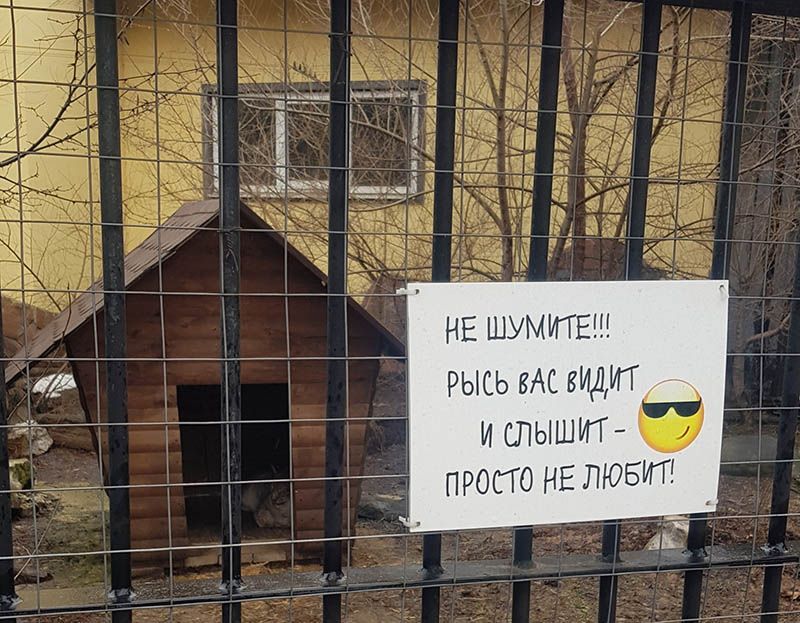 НЕ ШУМИТЕ!!!
РЫСЬ ВАС ВИДИТ
И СЛЫШИТ –
ПРОСТО НЕ ЛЮБИТ!